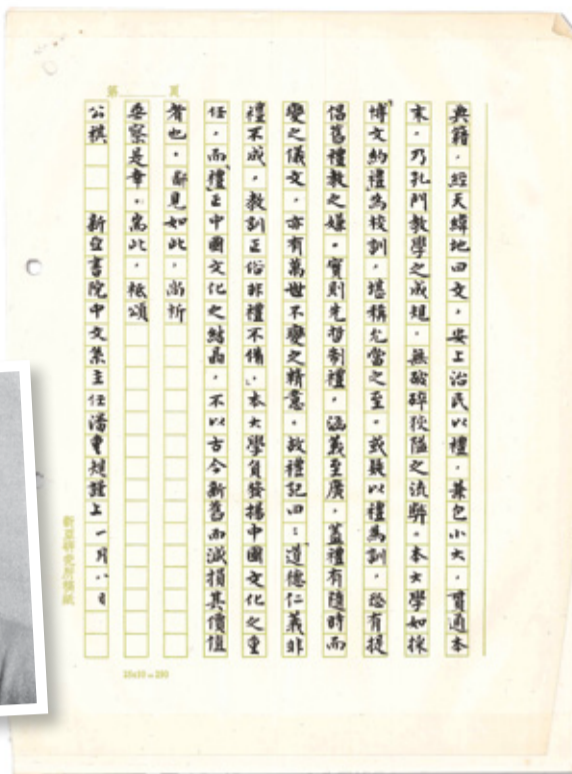 第　　頁
典籍，經天緯地曰文，安上治民以禮，兼包小大，貫通本
末，乃孔門教學之成規，無破碎狹隘之流弊。本大學如採
博文約禮為校訓，堪稱允當之至。或疑以禮為訓，恐有提
倡舊禮教之嫌。實則先哲制禮，涵義至廣，蓋禮有隨時而
變之儀文，亦有萬世不變之精意。故禮記曰：「道德仁義非
禮不成，教訓正俗非禮不備。」本大學負發揚中國文化之重
任，而禮正中國文化之結晶，不以古今新舊而減損其價值
者也。鄙見如此，尚祈
垂察是幸。耑此，祗頌
公祺　　新亞書院中文系主任潘重規謹上　一月八日
新亞研究所稿紙